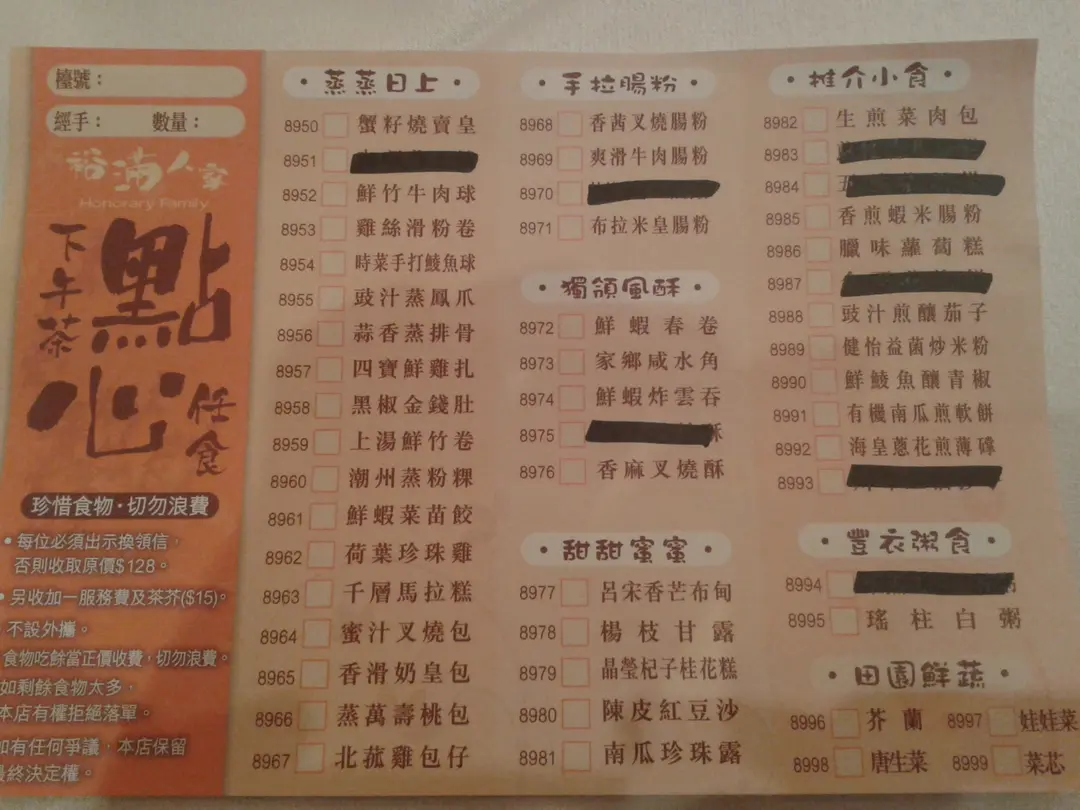 檯號：
經手： 數量：
裕滿人家
Honorary Family
下午茶
點心
任食
珍惜食物·切勿浪費
• 每位必須出示換領信，
否則收取原價$128。
• 另收加一服務費及茶芥($15)。
不設外攜。
食物吃餘當正價收費，切勿浪費。
如剩餘食物太多，
本店有權拒絕落單。
如有任何爭議，本店保留
最終決定權。
· 蒸蒸日上 ·
8950 蟹籽燒賣皇
8951
8952 鮮竹牛肉球
8953 雞絲滑粉卷
8954 時菜手打鯪魚球
8955 豉汁蒸鳳爪
8956 蒜香蒸排骨
8957 四寶鮮雞扎
8958 黑椒金錢肚
8959 上湯鮮竹卷
8960 潮州蒸粉粿
8961 鮮蝦菜苗餃
8962 荷葉珍珠雞
8963 千層馬拉糕
8964 蜜汁叉燒包
8965 香滑奶皇包
8966 蒸萬壽桃包
8967 北菰雞包仔
· 手拉腸粉 ·
8968 香茜叉燒腸粉
8969 爽滑牛肉腸粉
8970
8971 布拉米皇腸粉
· 獨領風酥 ·
8972 鮮蝦春卷
8973 家鄉咸水角
8974 鮮蝦炸雲吞
8975 酥
8976 香麻叉燒酥
· 甜甜蜜蜜 ·
8977 呂宋香芒布甸
8978 楊枝甘露
8979 晶瑩杞子桂花糕
8980 陳皮紅豆沙
8981 南瓜珍珠露
· 推介小食 ·
8982 生煎菜肉包
8983
8984
8985 香煎蝦米腸粉
8986 臘味蘿蔔糕
8987
8988 豉汁煎釀茄子
8989 健怡益菌炒米粉
8990 鮮鯪魚釀青椒
8991 有機南瓜煎軟餅
8992 海皇蔥花煎薄磼
8993
· 豐衣粥食 ·
8994
8995 瑤柱白粥
· 田園鮮蔬 ·
8996 芥蘭 8997 娃娃菜
8998 唐生菜 8999 菜芯